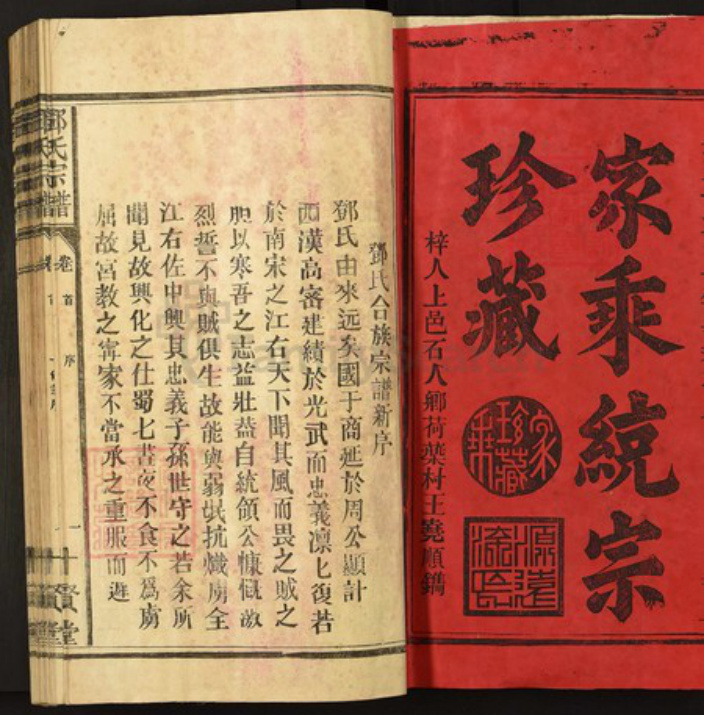 家乘統宗
珍藏
家乘珍藏
源遠流長
梓人上邑石人鄉荷葉村王堯順鐫
鄧氏合族宗譜新序
鄧氏由來远矣國于商延於周公顯計
西漢高密建績於光武而忠義凛匕復若
於南宋之江右天下聞其風而畏之賊之
胆以寒吾之志益壯葢自統領公慷慨激
烈誓不與賊俱生故能與弱氓抗熾虜全
江右佐中興其忠義子孫世守之若余所
聞見故興化之仕蜀七晝夜不食不爲虜
屈故宮教之寗家不當承之重服而遜
鄧氏宗譜
卷首
序
一
賢堂